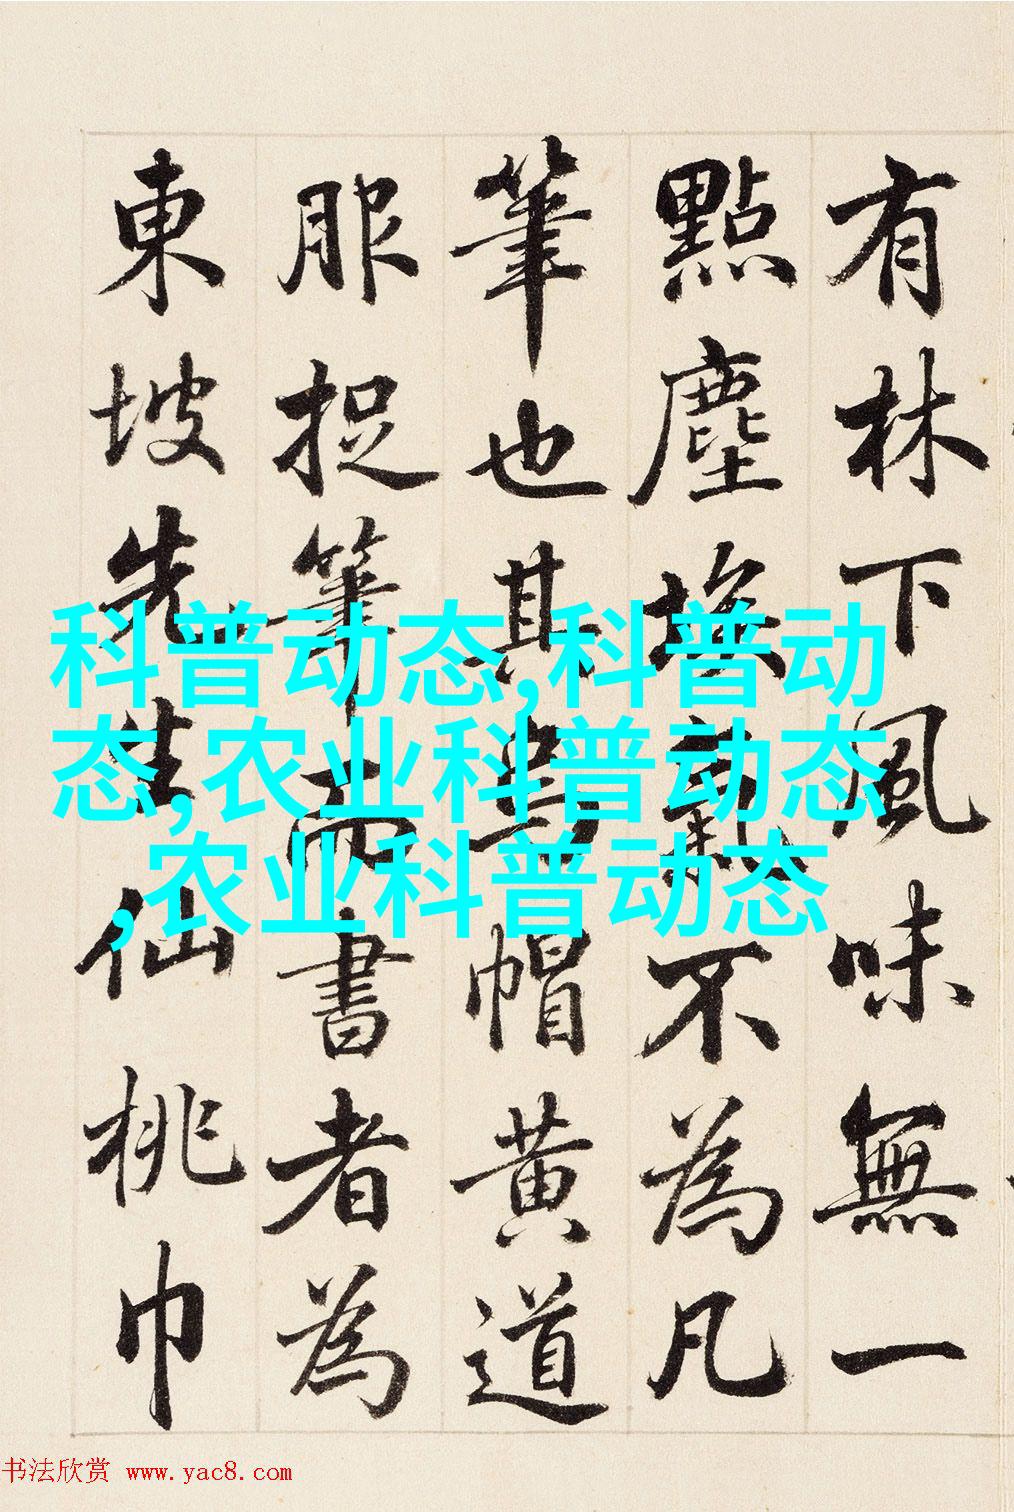 有林下風味無一
點塵埃氣不為凡
筆也其烏帽黃道
服捉筆而書者為
東坡先生仙桃巾
科普动态,科普动
态,农业科普动态
,农业科普动态
书法欣赏 www.yac8.com